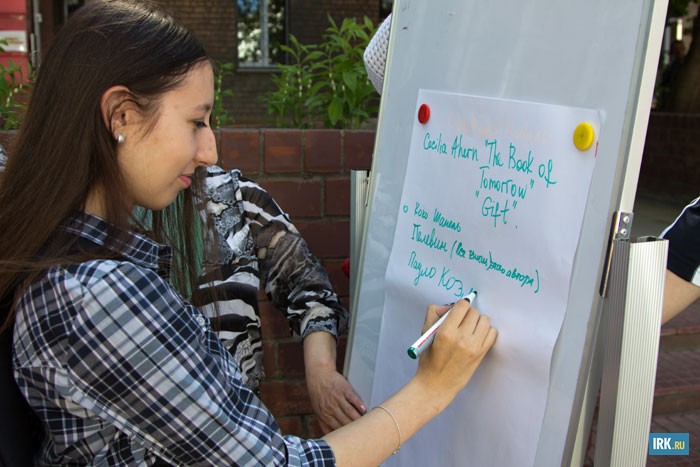 Cecilia Ahern "The Book of
Tomorrow"
"Gift".
Коко Шанель
Пелевин (все книги этого автора)
Пауло Коэл
IRK.RU